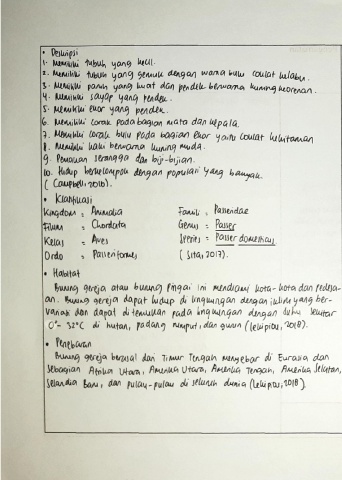 • Deskripsi
1. Memiliki tubuh yang kecil.
2. Memiliki tubuh yang gemuk dengan warna bulu coklat kelabu.
3. Memiliki paruh yang kuat dan pendek berwarna kuning keorenan.
4. Memiliki sayap yang pendek.
5. Memiliki ekor yang pendek.
6. Memiliki corak pada bagian mata dan kepala.
7. Memiliki corak bulu pada bagian ekor yaitu coulat kehitaman
8. Memiliki kaki berwarna kuning muda.
9. Pemakan serangga dan biji-bijian.
10. Hidup berkelompok dengan populasi yang banyak.
(Campbell, 2010).
• Klasifikasi
Kingdom : Animalia Famili : Passeridae
Filum : Chordata Genus : Passer
Kelas : Aves Species : Passer domesticus
Ordo : Passeriformes (Sita, 2017).
• Habitat
Burung gereja atau burung Pingai ini mendiami kota-kota dan pedesa-
an. Burung gereja dapat hidup di lingkungan dengan iklim yang ber-
variasi dan dapat ditemukan pada lingkungan dengan suhu sekitar
0°- 32°C di hutan, padang rumput, dan gurun (Lekipiou, 2018).
• Penyebaran
Burung gereja berasal dari Timur Tengah menyebar di Eurasia dan
sebagian Afrika Utara, Amerika Utara, Amerika Tengah, Amerika Selatan,
Selandia Baru, dan pulau-pulau di seluruh dunia (Lekipiou, 2018).